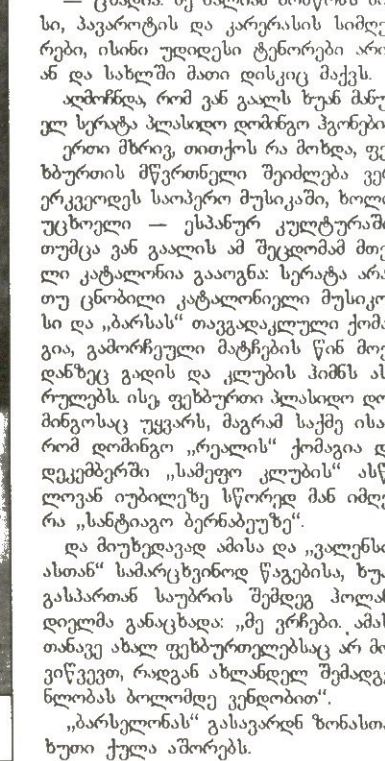 — ცხადია. მე ძალიან მომწონს
სი, პავაროტის და კარერასის სიმღე
რები, ისინი უდიდესი ტენორები არი
ან და სახლში მათი დისკიც მაქვს.
აღმოჩნდა, რომ ვან გაალს ხუან მანუ
ელ სერატა პლასიდო დომინგო ჰგონებია
ერთი მხრივ, თითქოს რა მოხდა, ფე
ხბურთის მწვრთნელი შეიძლება ვერ
ერკვეოდეს საოპერო მუსიკაში, ხოლო
უცხოელი — ესპანურ კულტურაში
თუმცა ვან გაალის ამ შეცდომამ მთე
ლი კატალონია გააოგნა: სერატა არა
თუ ცნობილი კატალონიელი მუსიკო
სი და „ბარსას“ თავგადაკლული ქომა
გია, გამორჩეული მატჩების წინ მოე
დანზეც გადის და კლუბის ჰიმნს ას
რულებს. ისე, ფეხბურთი პლასიდო დო
მინგოსაც უყვარს, მაგრამ საქმე ისაა
რომ დომინგო „რეალის“ ქომაგია და
დეკემბერში „სამეფო კლუბის“ ასწ
ლოვან იუბილეზე სწორედ მან იმღე
რა „სანტიაგო ბერნაბეუზე“.
და მიუხედავად ამისა და „ვალენსი
ასთან“ სამარცხვინოდ წაგებისა, ხუა
გასპართან საუბრის შემდეგ ჰოლან
დიელმა განაცხადა: „მე ვრჩები. ამას
თანავე ახალ ფეხბურთელებსაც არ მო
ვიწვევთ, რადგან ახლანდელ შემადგე
ნლობას ბოლომდე ვენდობით“.
„ბარსელონას“ გასავარდნ ზონასთა
ხუთი ქულა აშორებს.